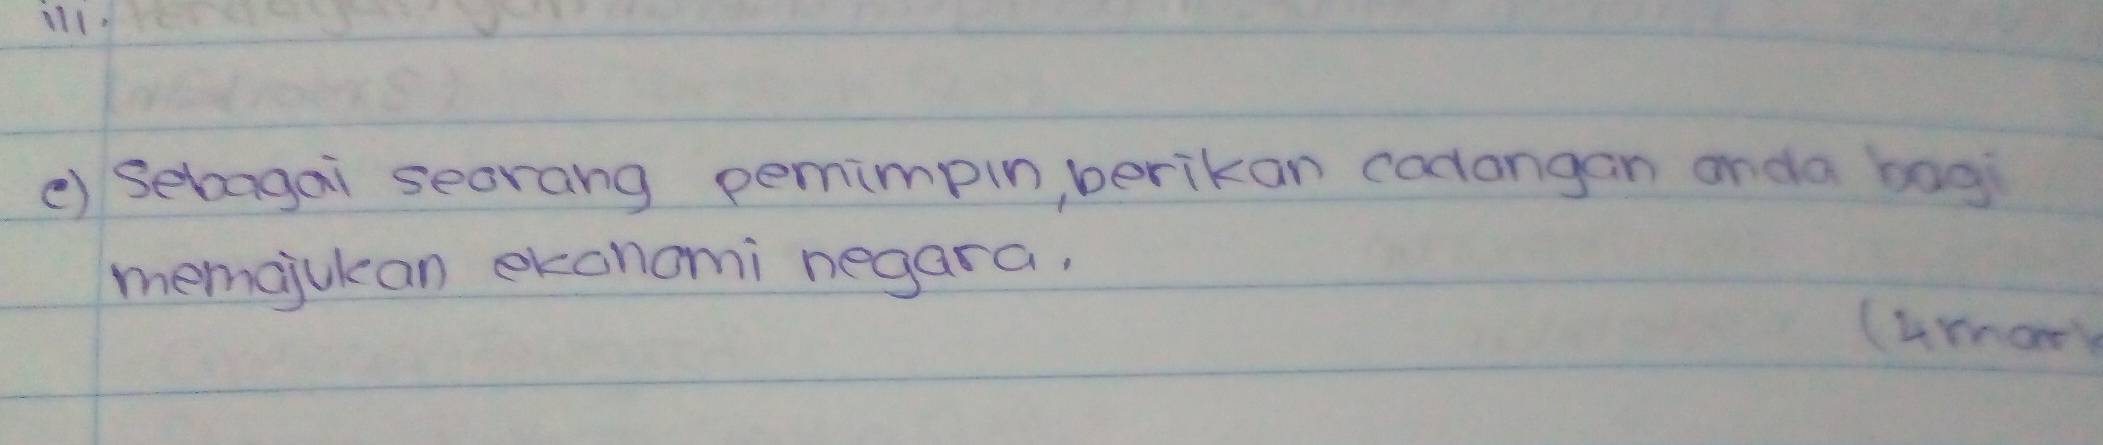 iii.
e) Sebagai seorang pemimpin, berikan cadangan anda bagi
memajukan ekonomi negara.
(4 mar